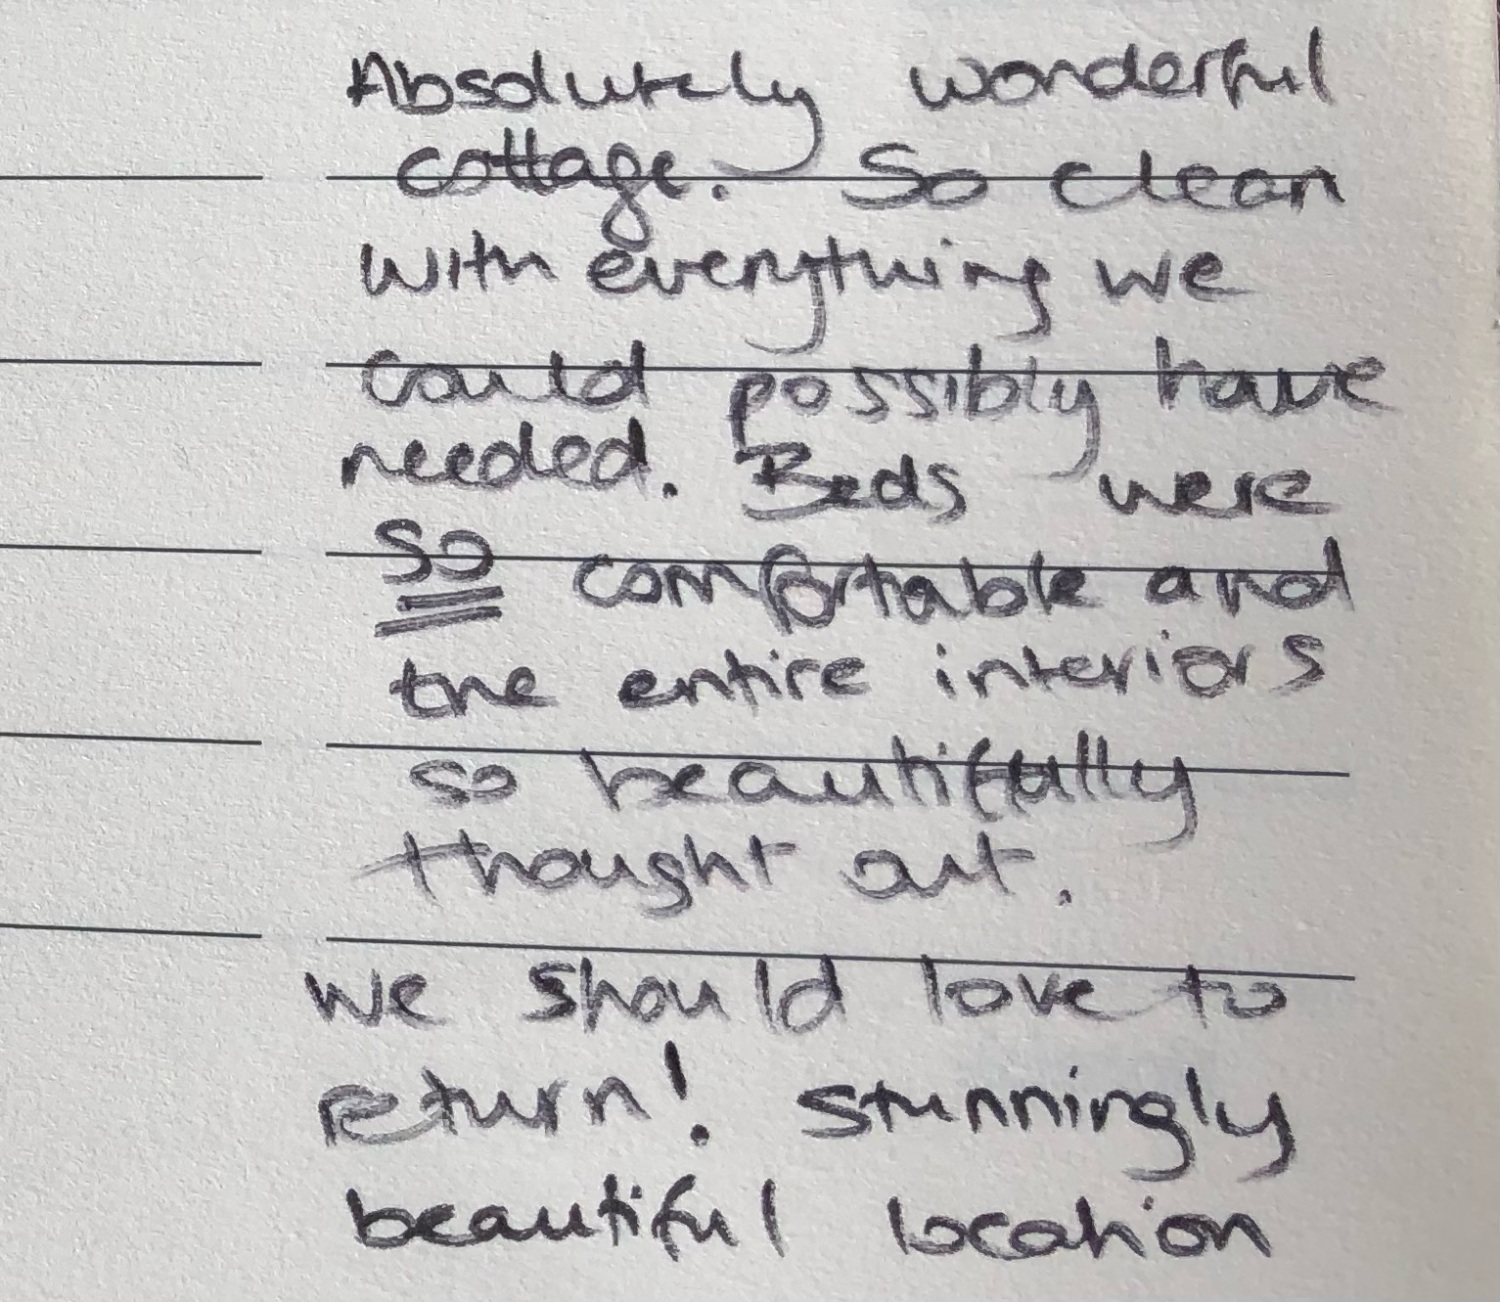 Absolutely wonderful
cottage. So clean
with everything we
could possibly have
needed. Beds were
so comfortable and
the entire interiors
so beautifully
thought out.
we should love to
return! Stunningly
beautiful location